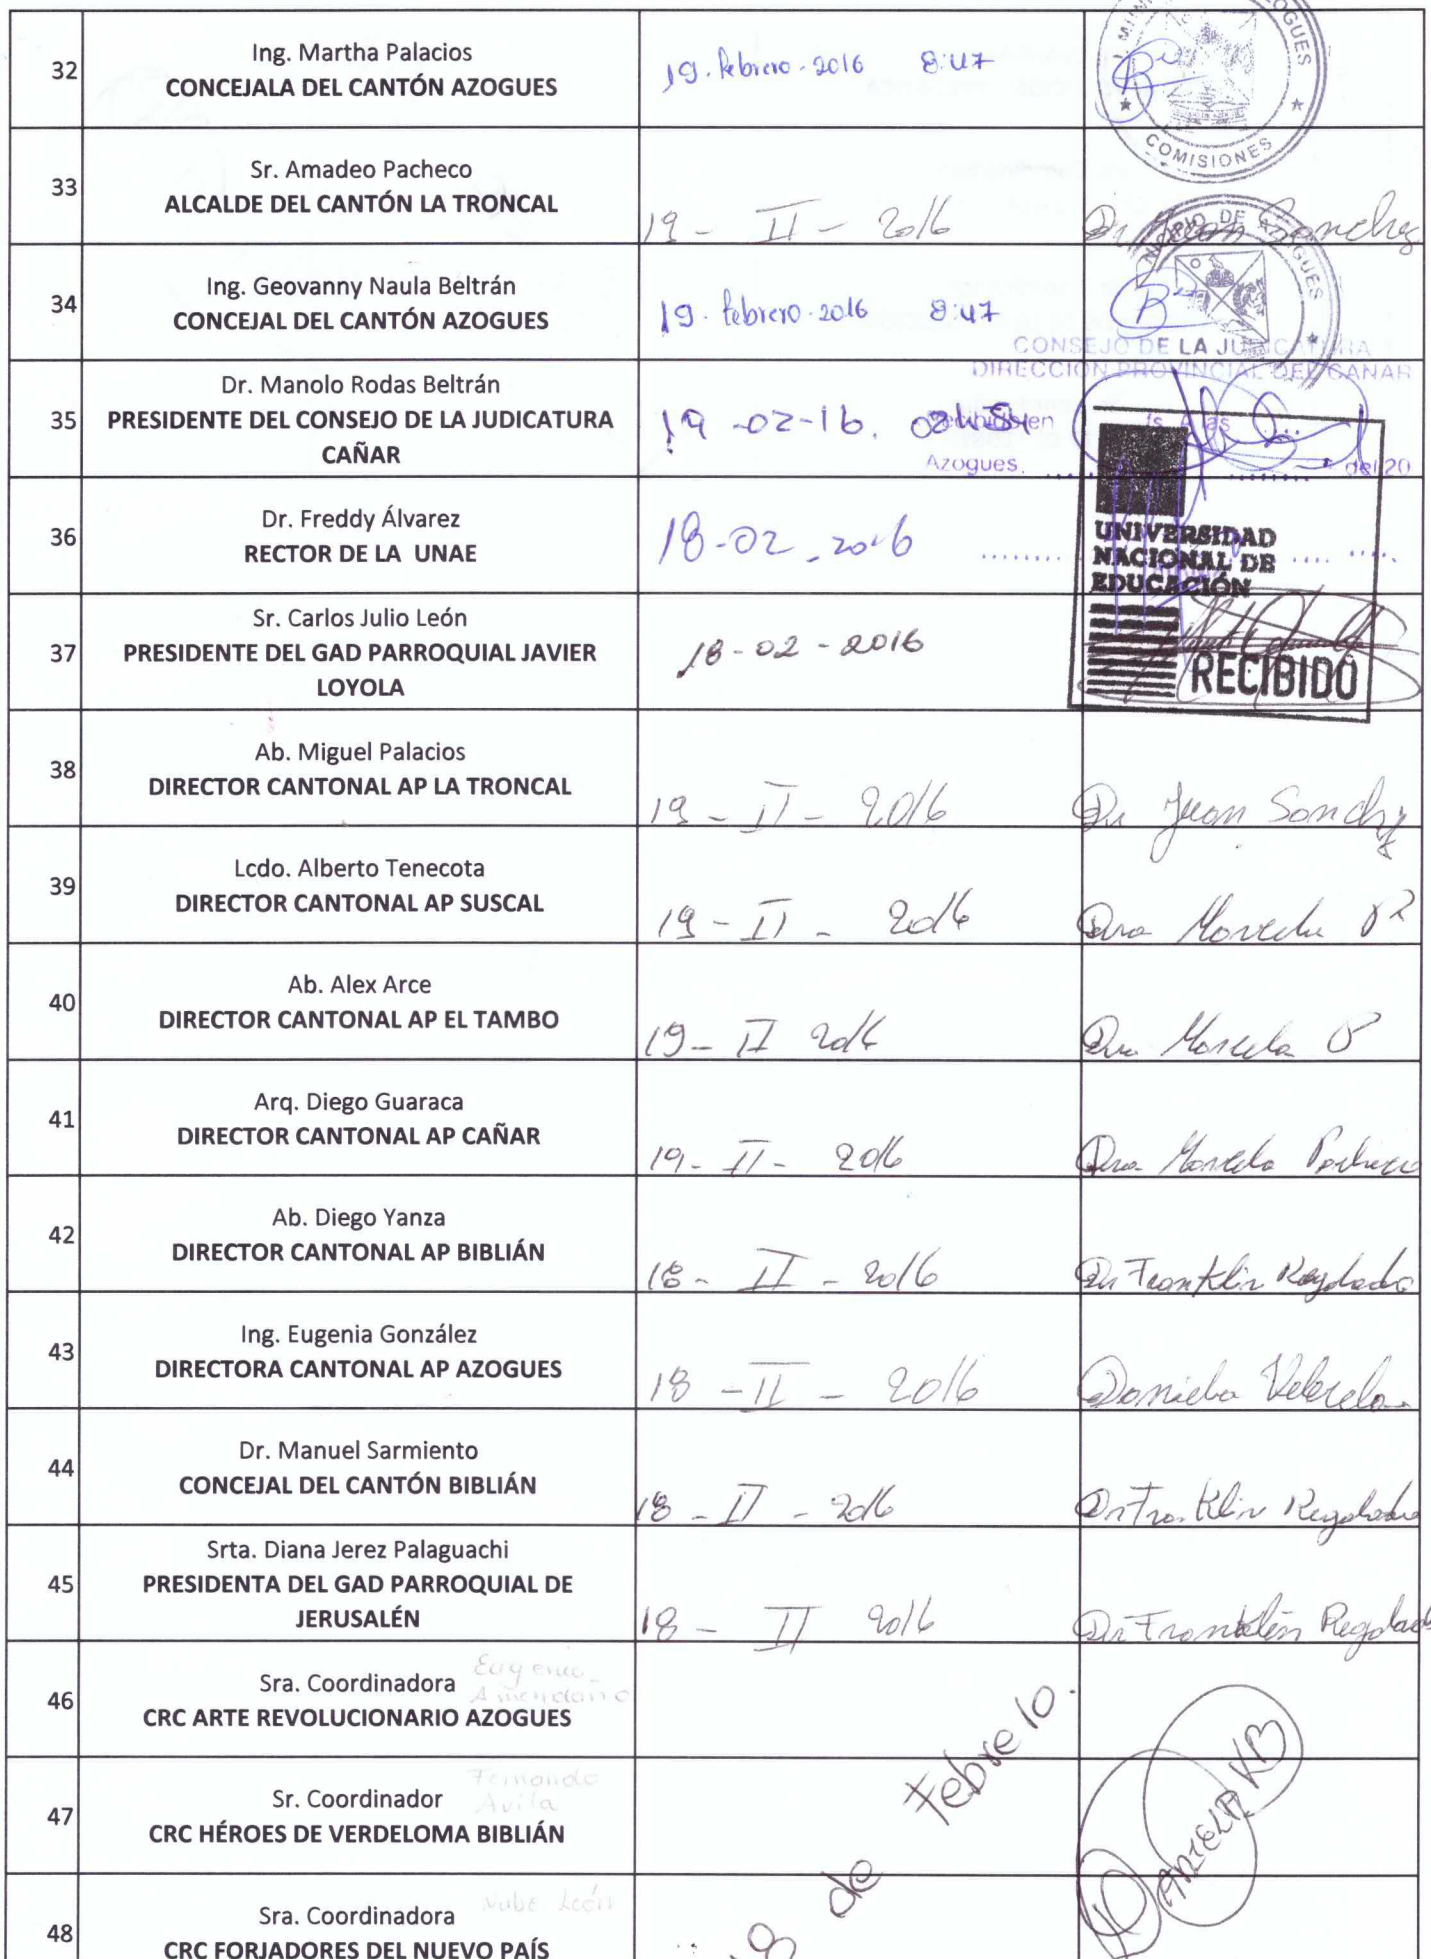 32 Ing. Martha Palacios
CONCEJALA DEL CANTÓN AZOGUES
19. febrero. 2016 8:47
AZOGUES
COMISIONES
33 Sr. Amadeo Pacheco
ALCALDE DEL CANTÓN LA TRONCAL
19 - II - 2016 Dr. Juan Sanchez
DE AZOGUES
34 Ing. Geovanny Naula Beltrán
CONCEJAL DEL CANTÓN AZOGUES
19. febrero. 2016 8:47
CONSEJO DE LA JUDICATURA
DIRECCION PROVINCIAL DEL CAÑAR
35 Dr. Manolo Rodas Beltrán
PRESIDENTE DEL CONSEJO DE LA JUDICATURA
CAÑAR
19-02-16.
Azogues, del 20
36 Dr. Freddy Álvarez
RECTOR DE LA UNAE
18-02-2016
UNIVERSIDAD
NACIONAL DE
EDUCACIÓN
RECIBIDO
37 Sr. Carlos Julio León
PRESIDENTE DEL GAD PARROQUIAL JAVIER
LOYOLA
18-02-2016
38 Ab. Miguel Palacios
DIRECTOR CANTONAL AP LA TRONCAL
19 - II - 2016 Dr Juan Sanchez
39 Lcdo. Alberto Tenecota
DIRECTOR CANTONAL AP SUSCAL
19 - II - 2016 Dra Marcela P
40 Ab. Alex Arce
DIRECTOR CANTONAL AP EL TAMBO
19 - II 2016 Dra Marcela P
41 Arq. Diego Guaraca
DIRECTOR CANTONAL AP CAÑAR
19 - II - 2016 Dra. Marcela Pacheco
42 Ab. Diego Yanza
DIRECTOR CANTONAL AP BIBLIÁN
18 - II - 2016 Dr Franklin Regalado
43 Ing. Eugenia González
DIRECTORA CANTONAL AP AZOGUES
18 - II - 2016 Daniela
44 Dr. Manuel Sarmiento
CONCEJAL DEL CANTÓN BIBLIÁN
18 - II - 2016 Dr Franklin Regalado
45 Srta. Diana Jerez Palaguachi
PRESIDENTA DEL GAD PARROQUIAL DE
JERUSALÉN
18 - II 2016 Dr Franklin Regalado
46 Sra. Coordinadora Eugenia
Amendaño
CRC ARTE REVOLUCIONARIO AZOGUES
47 Sr. Coordinador Fernando
Avila
CRC HÉROES DE VERDELOMA BIBLIÁN
48 Sra. Coordinadora Nube León
CRC FORJADORES DEL NUEVO PAÍS
18 de Febrero.
DANIELA